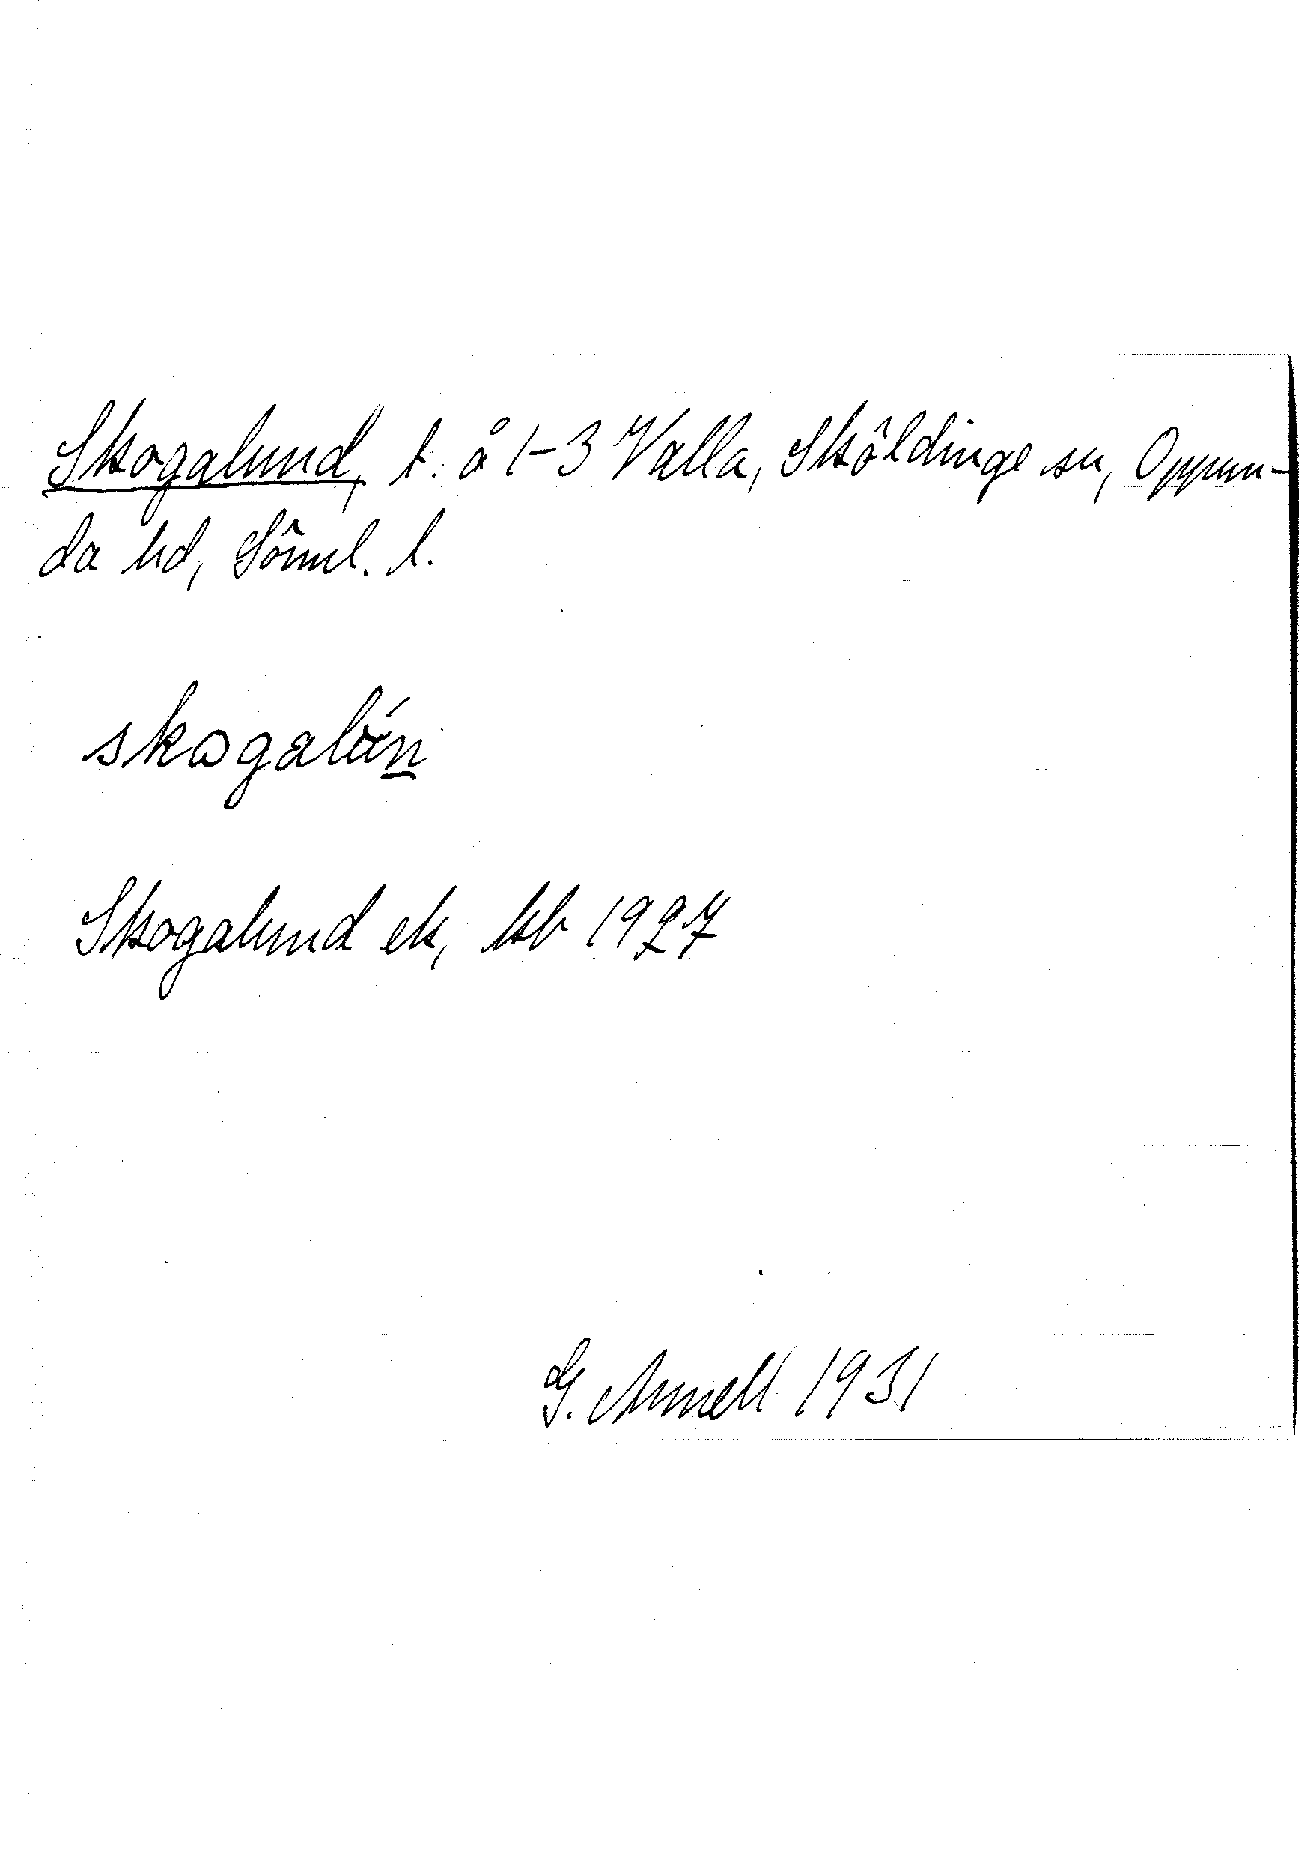 Skogalund, t. å 1-3 Valla, Sköldinge sn, Oppun-
da hd, Söml. l.
Skogalund ek, kb 1927
G. Annell 1931